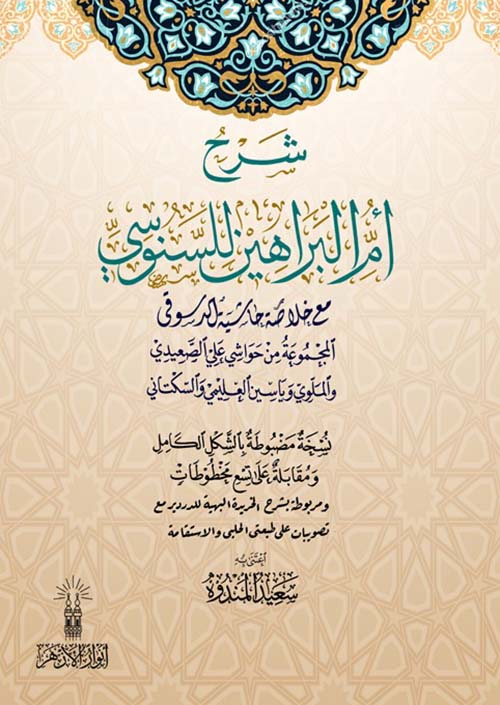 شرح
أمّ البراهين للسّنوسيّ
مع خلاصة حاشية الدسوقي
المجموعةُ مِنْ حَوَاشِي عَلِي الصَّعِيدِيّ
والملَوِي وَيَاسِينَ العُلَيْمِيّ والسّكتاني
نُسْخَةٌ مَضْبُوطَةٌ بِالشَّكْلِ الكَامِلِ
وَمُقَابَلَةٌ عَلَى تِسْعِ مَخْطُوطَاتٍ
ومربوطة بشرح الخريدة البهية للدردير مع
تصويبات على طبعتي الحلبي والاستقامة
اعْتَنَى بِهِ
سَعِيد المَنْدُوه
أنوار الأزهر